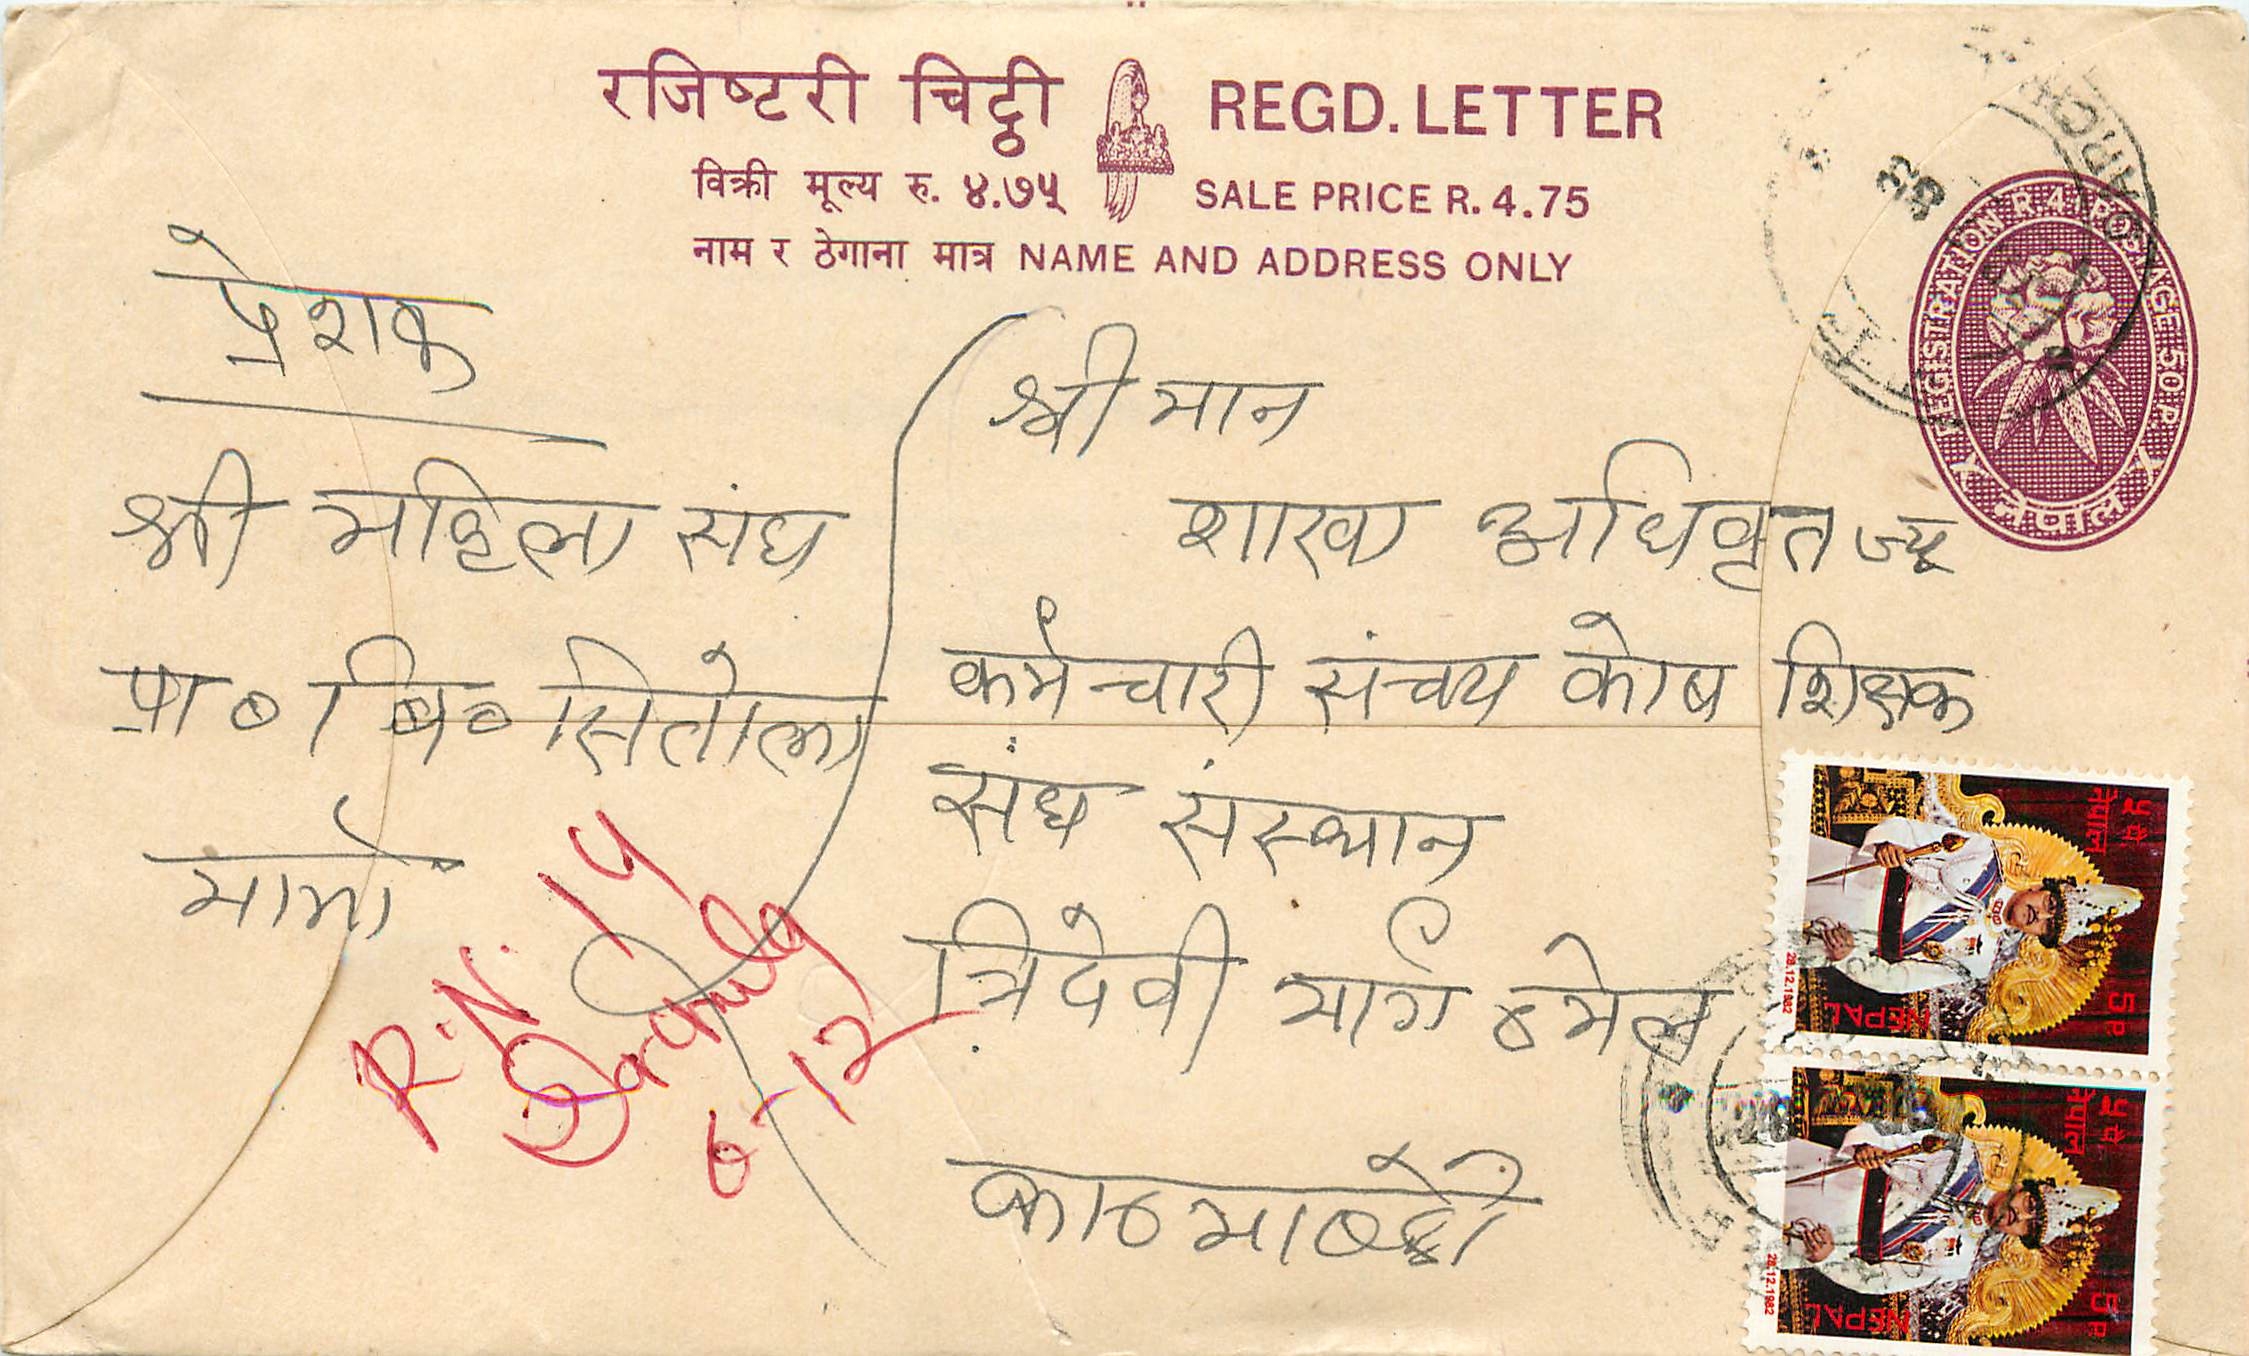 रजिष्टरी चिट्ठी REGD. LETTER
विक्री मूल्य रु. ४.७५ SALE PRICE R. 4.75
नाम र ठेगाना मात्र NAME AND ADDRESS ONLY
REGISTRATION R.4. POSTAGE 50 P.
नेपाल
प्रेशक
श्री महिला संघ
प्रा० बि० सितोला
श्रीमान
शाखा अधिकृत ज्यू
कर्मचारी संचय कोष शिक्षक
संघ संस्थान
त्रिदेवी मार्ग ठमेल
काठमाण्डौ
R.N. 14
6-12
नेपाल
५ पै
5P
NEPAL
28.12.1982
नेपाल
५ पै
5P
NEPAL
28.12.1982